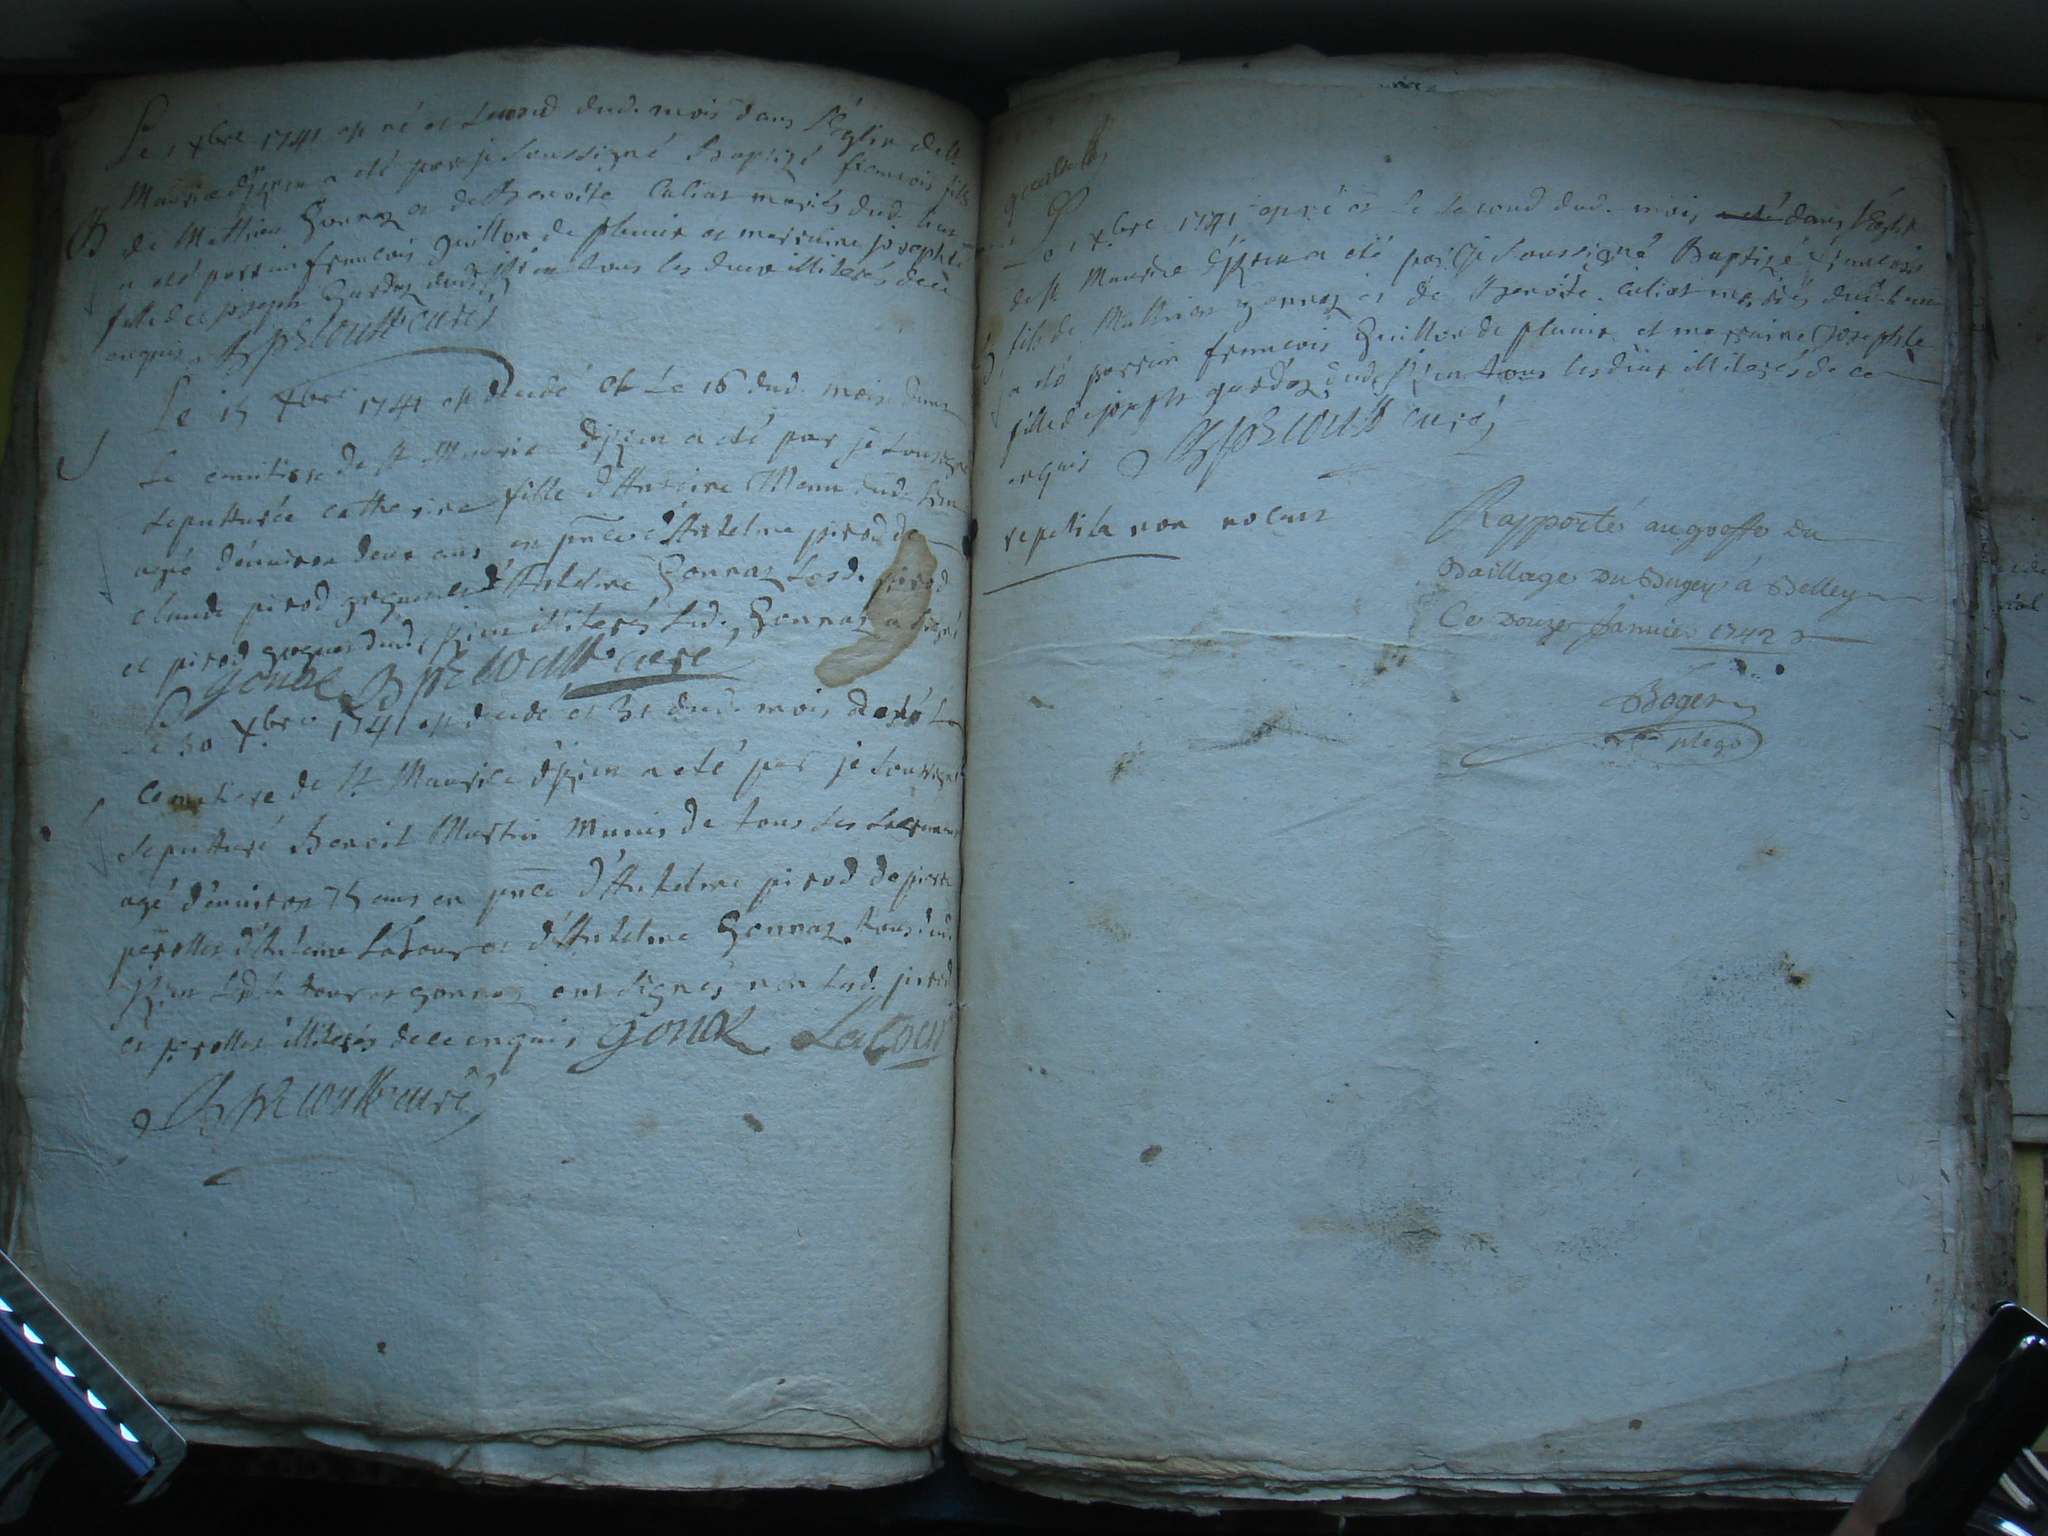 Le 1 xbre 1741 est né et second dud. mois dans l'Eglise de St
Maurice d'Izieu a eté par je soussigné Baptizé francois fils
B de Mathieu Gonnaz et de Benoite Culiat mariés dud. lieu
a eté parrain francois guillon de plenia et marraine josephte
fille de joseph Gardaz dud. Izieu tous les deux illiterés de ce
enquis curé
Le 15 xbre 1741 est decedé et Le 16 dud. mois dans
Le cemitiere de St Maurice d'Izieu a eté par je soussigné
S
sepulturée catherine fille d'Antoine dud. Izieu
agé d'environ deux ans en pnce d'Antelme pirod de
claude pirod d'Antelme Gonnaz Lesd. pirod
et pirod dud. Izieu illiterés Led. Gonnaz a signé
gonaz curé
Le 30 xbre 1741 est decedé et 31 dud. mois Le
cemitiere de St Maurice d'Izieu a eté par je soussigné
sepulturé Benoit Martin Munis de tous Les sacremens
agé d'environ 75 ans en pnce d'Antelme pirod de pierre
perollet d'Antoine Latour et d'Antelme Gonnaz tous dud.
Izieu Led. la tour et gonnaz ont signés non Led. pirod
et perollet illiterés de ce enquis gonaz Latour
curé
Le 1 xbre 1741 est né et Le second dud. mois a eté dans l'Eglise
de St Maurice d'Izieu a eté par je soussigné Baptizé francois
fils de Mathieu gonnaz et de Benoite Culiat mariés dud. lieu
a eté parrain francois Guillon de plenia et marraine josephte
fille de joseph gardaz dud. Izieu tous les deux illiterés de ce
enquis curé
repetita non nocent
Rapporté au greffe du
Bailliage du Bugey à Belley
Ce Douze Janvier 1742
Boger